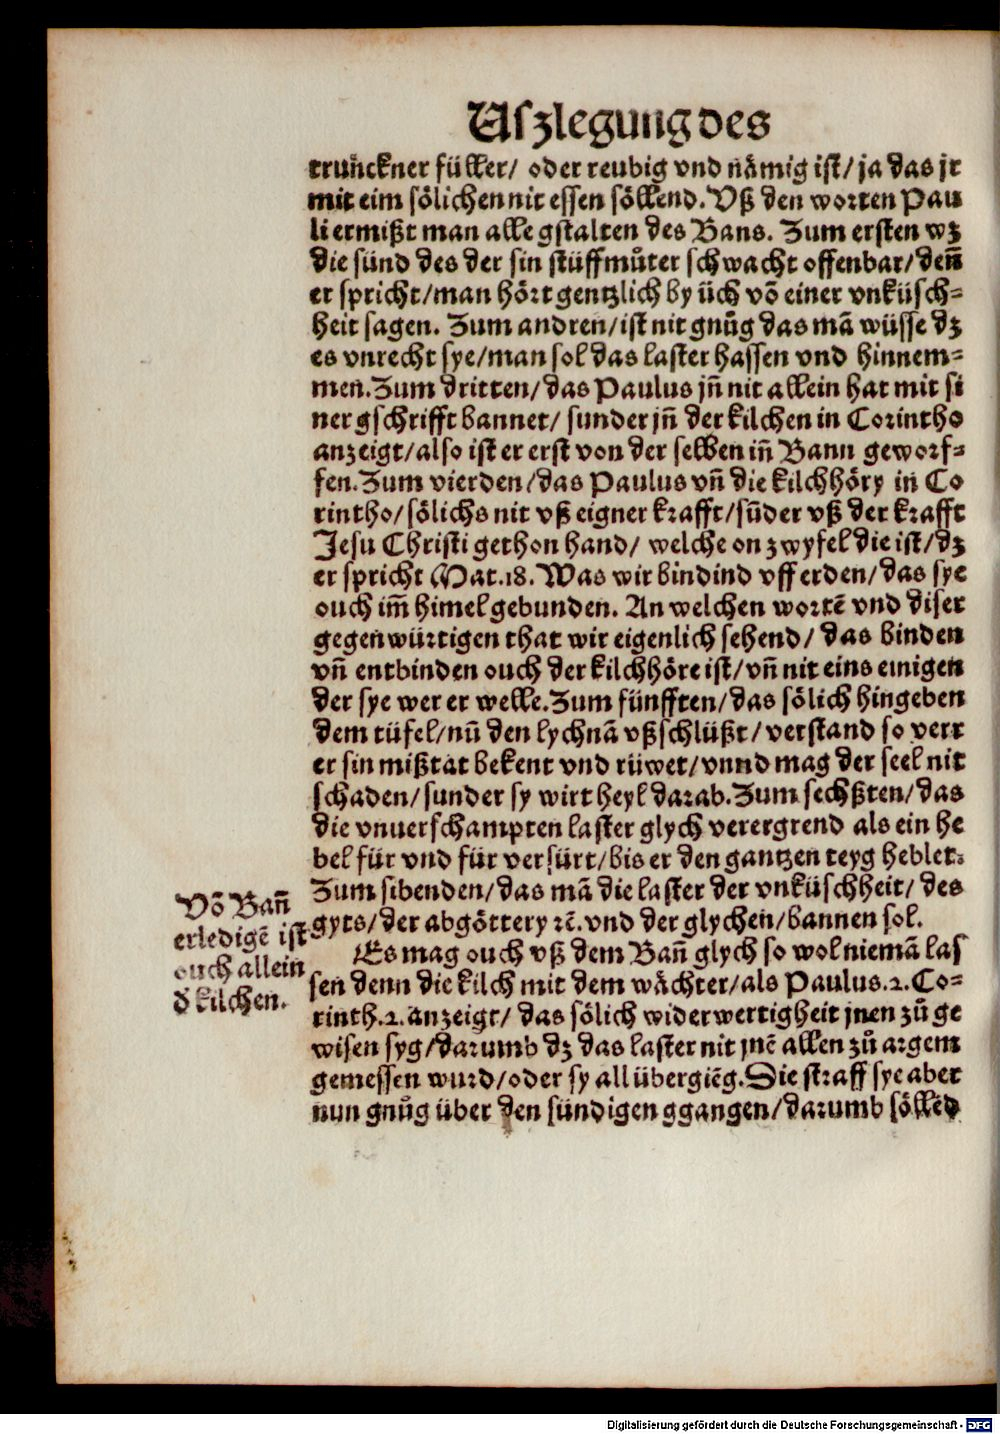 Uszlegung des
trunckner füller/ oder reubig vnd nämig ist/ ja das jr
mit eim sölichen nit essen söllend. Vß den worten Pau
li ermißt man alle gstalten des Bans. Zum ersten wz
die sünd des der sin stüffmuͦter schwacht offenbar/ deñ
er spricht/ man hört gentzlich by üch võ einer vnküsch⸗
heit sagen. Zum andren/ ist nit gnuͦg das mã wüsse dz
es vnrecht sye/ man sol das laster hassen vnd hinnem⸗
men. Zum dritten/ das Paulus jñ nit allein hat mit si
ner gschrifft bannet/ sunder jñ der kilchen in Corintho
anzeigt/ also ist er erst von der selben iñ Bann geworf⸗
fen. Zum vierden/ das Paulus vñ die kilchhöry in Co
rintho/ sölichs nit vß eigner krafft/ sũder vß der krafft
Jesu Christi gethon hand/ welche on zwyfel die ist/ dz
er spricht Mat. 18. Was wir bindind vff erden/ das sye
ouch im̃ himel gebunden. An welchen wortẽ vnd diser
gegenwürtigen that wir eigenlich sehend/ das binden
vñ entbinden ouch der kilchhöre ist/ vñ nit eins einigen
der sye wer er welle. Zum fünfften/ das sölich hingeben
dem tüfel/ nũ den lychnã vßschlüßt/ verstand so verr
er sin mißtat bekent vnd rüwet/ vnnd mag der seel nit
schaden/ sunder sy wirt heyl darab. Zum sechßten/ das
die vnuerschampten laster glych verergrend als ein he
bel für vnd für versürt/ bis er den gantzen teyg heblet.
Zum sibenden/ das mã die laster der vnküschheit/ des
gyts/ der abgöttery ꝛc̃. vnd der glychen/ bannen sol.
Võ Bañ
erledigẽ ist
ouch allein
d̃ kilchen.
Es mag ouch vß dem Bañ glych so wol niemã las
sen denn die kilch mit dem wächter/ als Paulus. 2. Co⸗
rinth. 2. anzeigt/ das sölich widerwertigheit jnen zuͦ ge
wisen syg/ darumb dz das laster nit jnẽ allen zuͦ argem
gemessen wurd/ oder sy all übergiẽg. Die straff sye aber
nun gnuͦg über den sündigen ggangen/ darumb sölled
Digitalisierung gefördert durch die Deutsche Forschungsgemeinschaft - DFG